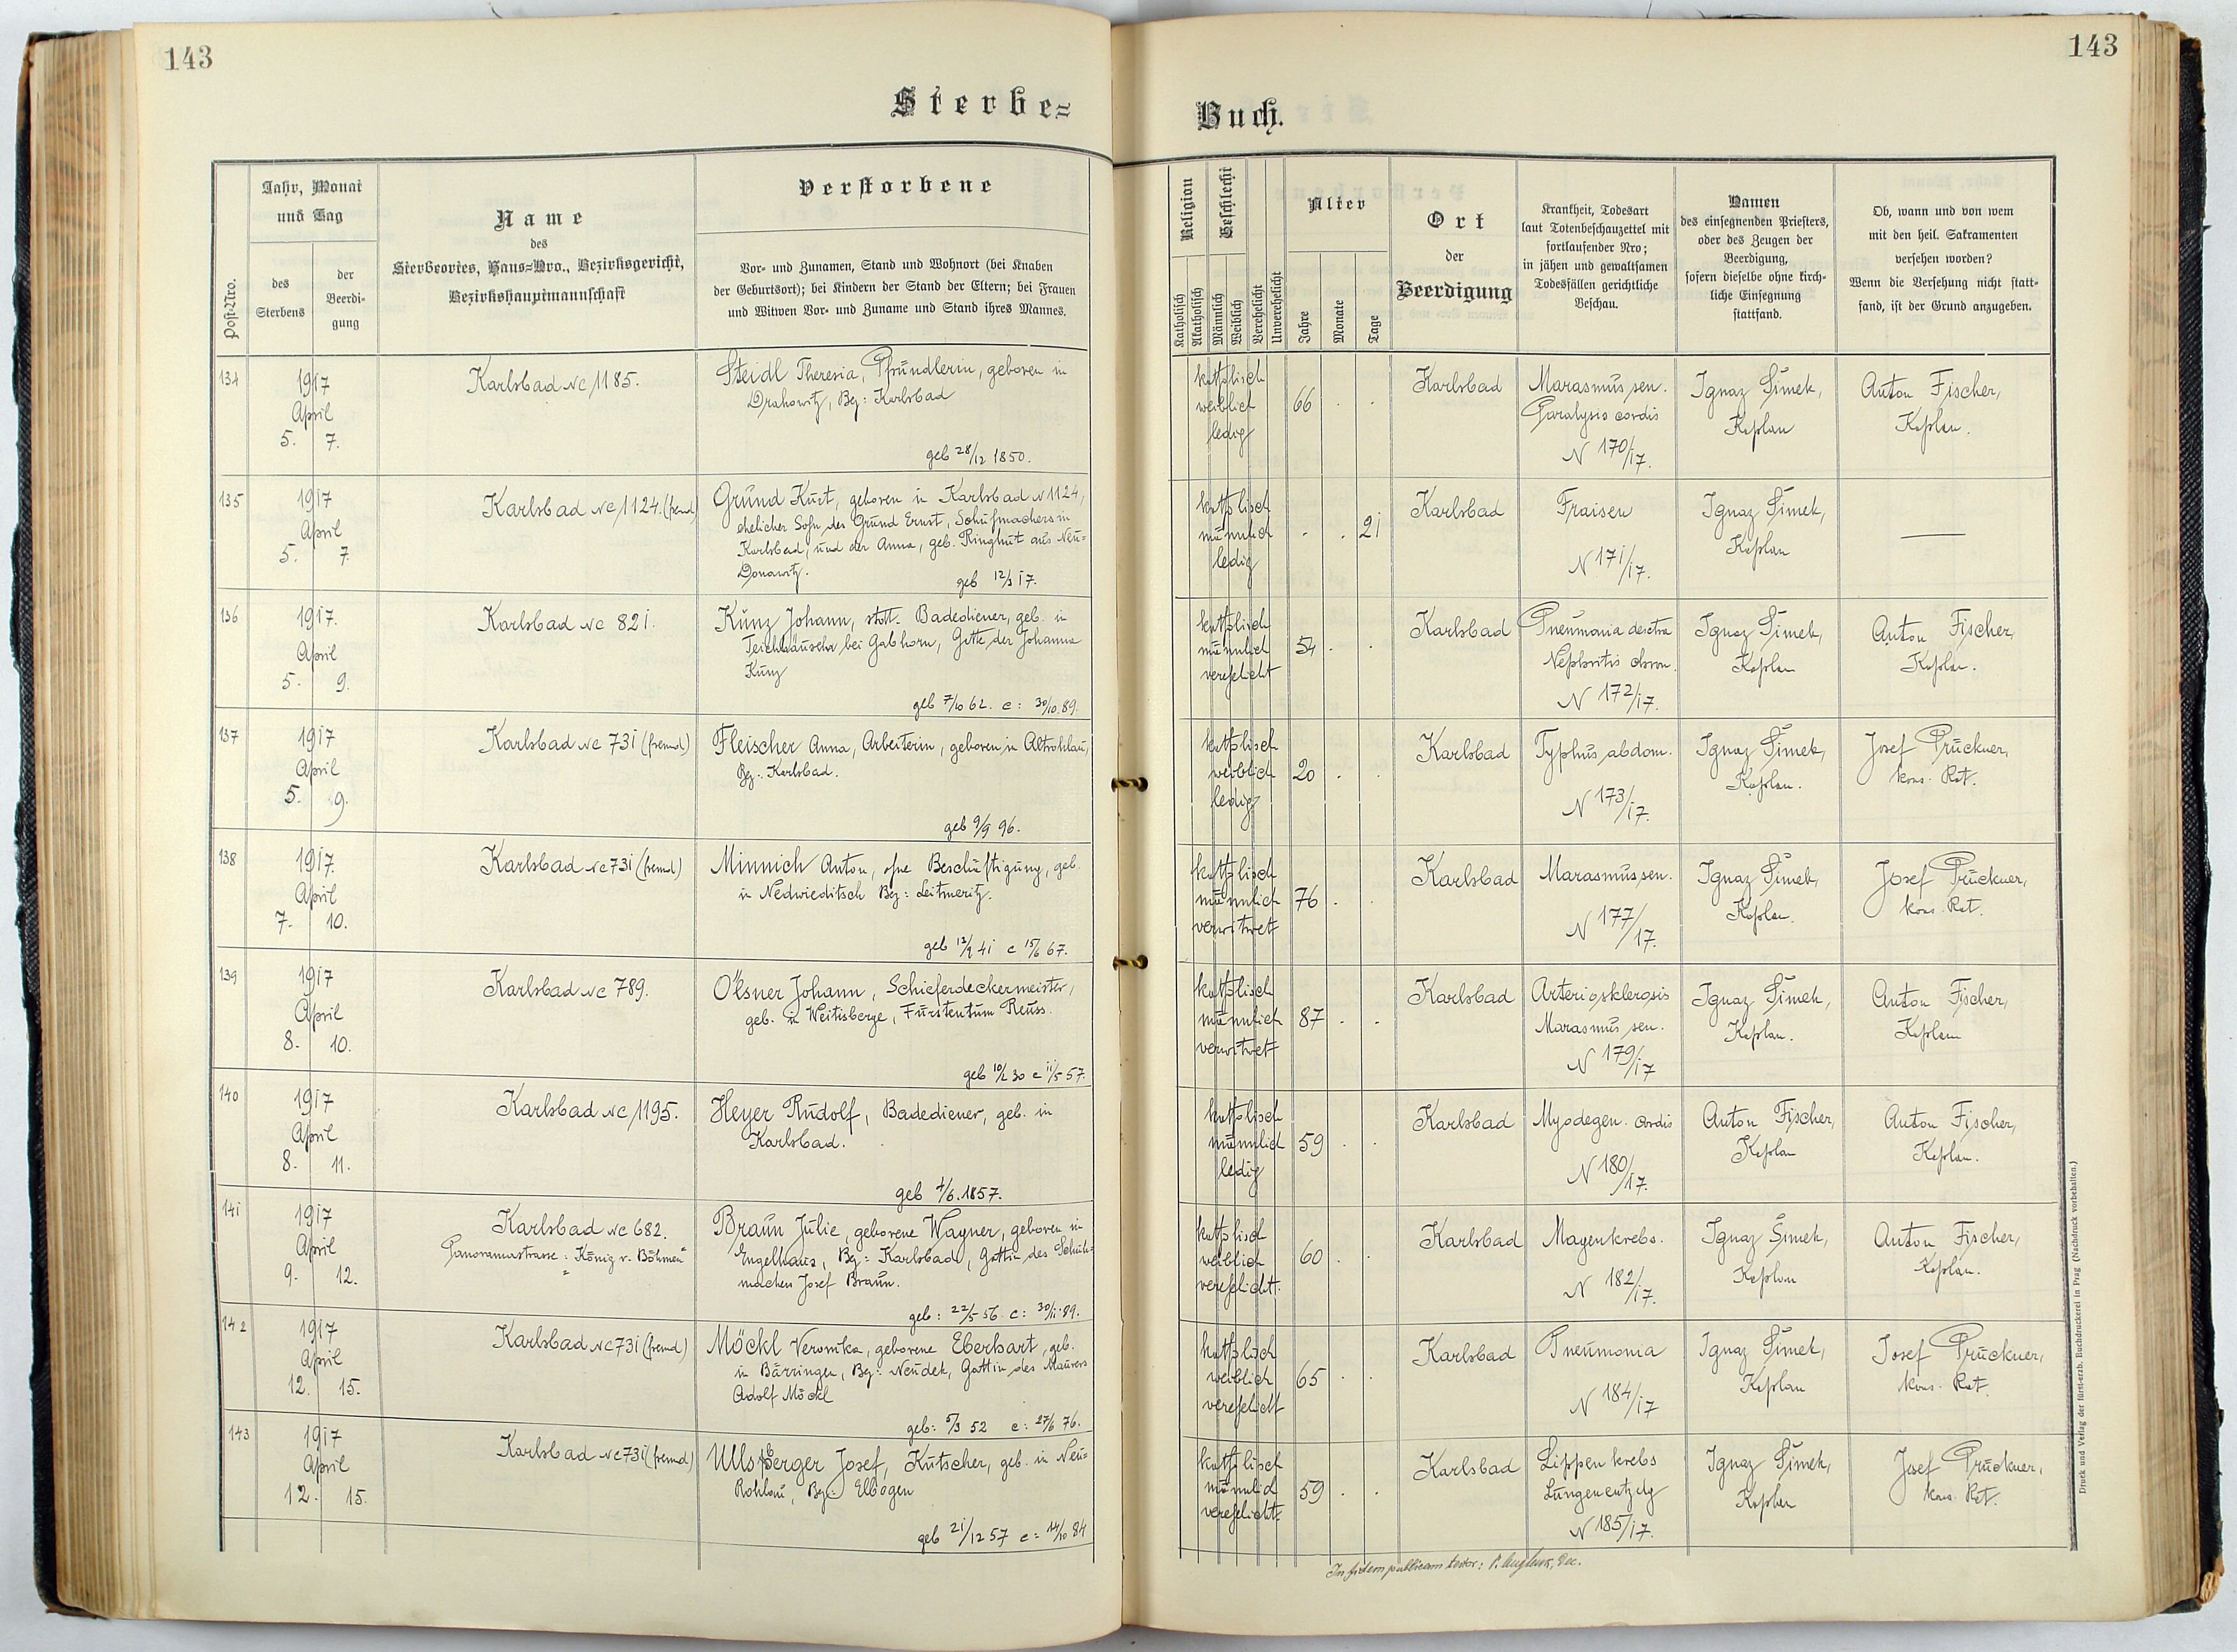 143
143
Sterbe=
Buch.
Post=Nro.
Jahr, Monat
und Tag
des
Sterbens
der
Beerdi-
gung
Name
des
Sterbeortes, Haus=Nro., Bezirksgericht,
Bezirkshauptmannschaft
Verstorbene
Vor- und Zunamen, Stand und Wohnort (bei Knaben
der Geburtsort); bei Kindern der Stand der Eltern; bei Frauen
und Witwen Vor- und Zuname und Stand ihres Mannes.
Religion
Katholisch
Akatholisch
Geschlecht
Männlich
Weiblich
Verehelicht
Unverehelicht
Alter
Jahre
Monate
Tage
Ort
der
Beerdigung
Krankheit, Todesart
laut Totenbeschauzettel mit
fortlaufender Nro;
in jähen und gewaltsamen
Todesfällen gerichtliche
Beschau.
Namen
des einsegnenden Priesters,
oder des Zeugen der
Beerdigung,
sofern dieselbe ohne kirch-
liche Einsegnung
stattfand.
Ob, wann und von wem
mit den heil. Sakramenten
versehen worden?
Wenn die Versehung nicht statt-
fand, ist der Grund anzugeben.
134
1917
April
5. 7.
Karlsbad Nc 1185.
Steidl Theresia, Pfründlerin, geboren in
Drahowitz, Bez: Karlsbad
geb 28/12 1850.
katholisch
weiblich
ledig
66 . .
Karlsbad
Marasmus sen.
Paralysis cordis
N 170/17.
Ignaz Šimek,
Kaplan
Anton Fischer,
Kaplan.
135
1917
April
5. 7.
Karlsbad Nc 1124. (fremd)
Grund Kurt, geboren in Karlsbad N 1124,
ehelicher Sohn des Grund Ernst, Schuhmachers in
Karlsbad, und der Anna, geb. Ringhut aus Neu=
Donawitz.
geb 12/3 17.
katholisch
männlich
ledig
. . 21
Karlsbad
Fraisen
N 171/17.
Ignaz Šimek,
Kaplan
136
1917.
April
5. 9.
Karlsbad Nc 821.
Kunz Johann, städt. Badediener, geb. in
Teichhäuseln bei Gabhorn, Gatte der Johanna
Kunz
geb 7/10 62. c: 30/10.89.
katholisch
männlich
verehelicht
54 . .
Karlsbad
Pneumonia dextra
Nephritis chron.
N 172/17.
Ignaz Šimek,
Kaplan
Anton Fischer,
Kaplan.
137
1917
April
5. 9.
Karlsbad Nc 731 (fremd)
Fleischer Anna, Arbeiterin, geboren in Altrohlau,
Bez: Karlsbad.
geb 9/9 96.
katholisch
weiblich
ledig
20 . .
Karlsbad
Typhus abdom.
N 173/17.
Ignaz Šimek,
Kaplan.
Josef Pruckner,
kons. Rat.
138
1917.
April
7. 10.
Karlsbad Nc 731 (fremd)
Minnich Anton, ohne Beschäftigung, geb.
in Nedwieditsch Bez: Leitmeritz.
geb 12/2 41 c 15/6 67.
katholisch
männlich
verwitwet
76 . .
Karlsbad
Marasmus sen.
N 177/17.
Ignaz Šimek,
Kaplan.
Josef Pruckner,
kons. Rat.
139
1917
April
8. 10.
Karlsbad Nc 789.
Ölsner Johann, Schieferdeckermeister,
geb. in Weitisberge, Fürstentum Reuss.
geb 10/2 30 c 11/5 57.
katholisch
männlich
verwitwet
87 . .
Karlsbad
Arteriosklerosis
Marasmus sen.
N 179/17
Ignaz Šimek,
Kaplan.
Anton Fischer,
Kaplan
140
1917
April
8. 11.
Karlsbad Nc 1195.
Heyer Rudolf, Badediener, geb. in
Karlsbad.
geb 4/6.1857.
katholisch
männlich
ledig
59 . .
Karlsbad
Myodegen. cordis
N 180/17.
Anton Fischer,
Kaplan
Anton Fischer,
Kaplan.
141
1917
April
9. 12.
Karlsbad Nc 682.
Panoramastrasse: "König v. Böhmen"
Braun Julie, geborene Wagner, geboren in
Engelhaus, Bez: Karlsbad, Gattin des Schuh=
machers Josef Braun.
geb: 22/5 56. c: 30/11.89.
katholisch
weiblich
verehelicht.
60 . .
Karlsbad
Magenkrebs.
N 182/17.
Ignaz Šimek,
Kaplan
Anton Fischer,
Kaplan.
142
1917
April
12. 15.
Karlsbad Nc 731 (fremd)
Möckl Veronika, geborene Eberhart, geb.
in Bärringen, Bez: Neudek, Gattin des Maurers
Adolf Möckl
geb: 5/3 52 c: 27/6 76.
katholisch
weiblich
verehelicht
65 . .
Karlsbad
Pneumonia
N 184/17
Ignaz Šimek,
Kaplan
Josef Pruckner,
kons. Rat.
143
1917
April
12. 15.
Karlsbad Nc 731 (fremd)
Ullsperger Josef, Kutscher, geb. in Neu=
Rohlau, Bez: Elbogen
geb 21/12 57 c: 14/10 84
katholisch
männlich
verehelicht
59 . .
Karlsbad
Lippenkrebs
Lungenentzdg
N 185/17.
Ignaz Šimek,
Kaplan
Josef Pruckner,
kons. Rat.
In fidem publicam testor:
Druck und Verlag der fürst-erzb. Buchdruckerei in Prag (Nachdruck vorbehalten.)